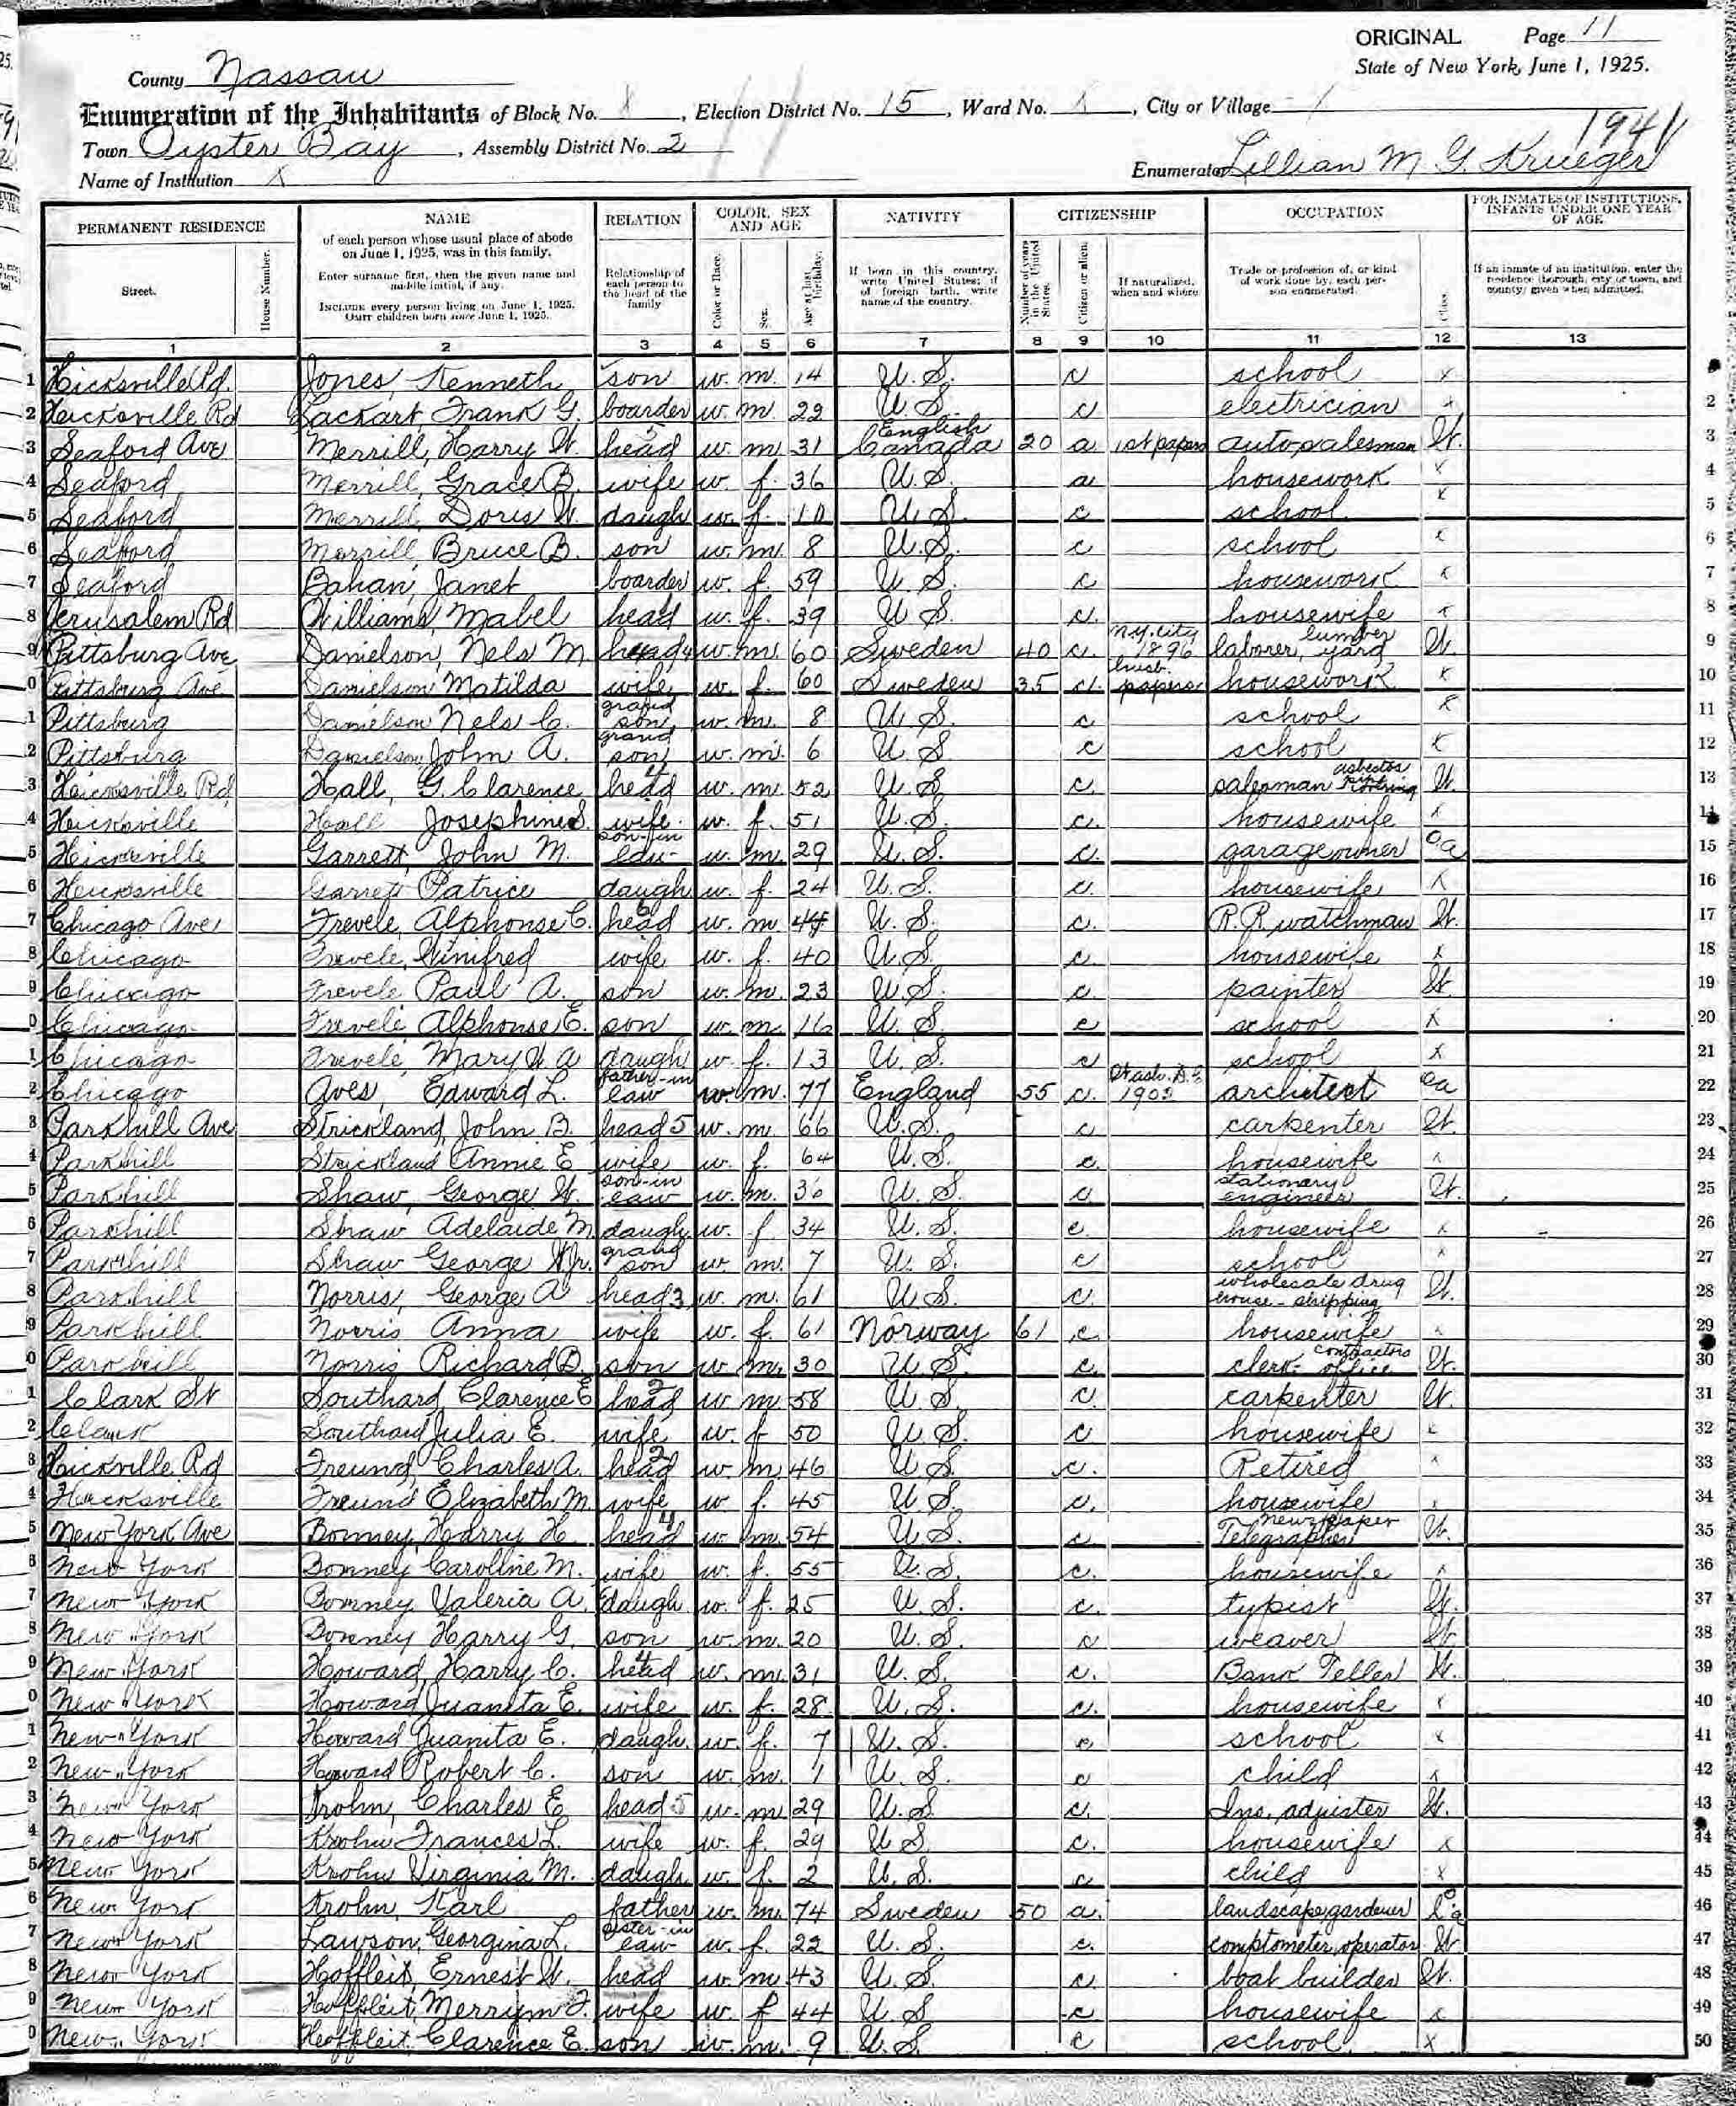 ORIGINAL Page 11
State of New York, June 1, 1925.
County Nassau
Enumeration of the Inhabitants of Block No. X, Election District No. 15, Ward No. X, City or Village
Town Oyster Bay, Assembly District No. 2
Name of Institution X Enumerator Lillian M. G. Krueger
PERMANENT RESIDENCE NAME RELATION COLOR, SEX AND AGE NATIVITY CITIZENSHIP OCCUPATION FOR INMATES OF INSTITUTIONS, INFANTS UNDER ONE YEAR OF AGE
Street. House Number. of each person whose usual place of abode on June 1, 1925, was in this family. Enter surname first, then the given name and middle initial, if any. INCLUDE every person living on June 1, 1925. OMIT children born since June 1, 1925. Relationship of each person to the head of the family Color or Race. Sex. Age at last birthday. If born in this country, write United States; if of foreign birth, write name of the country. Number of years in the United States. Citizen or alien. If naturalized, when and where. Trade or profession of, or kind of work done by, each person enumerated. Class. If an inmate of an institution, enter the residence (borough, city or town, and county) given when admitted.
1 2 3 4 5 6 7 8 9 10 11 12 13
1 Hicksville Rd. Jones, Kenneth son w. m. 14 U.S. c school x
2 Hicksville Rd Lackart, Frank G. boarder w. m. 22 U.S. c electrician x 2
3 Seaford Ave Merrill, Harry W. head 5 w. m. 31 English Canada 20 a 1st papers auto salesman W. 3
4 Seaford Merrill, Grace B. wife w. f. 36 U.S. a housework x 4
5 Seaford Merrill, Doris W. daugh w. f. 10 U.S. c school x 5
6 Seaford Merrill, Bruce B. son w. m. 8 U.S. c school x 6
7 Seaford Bahan, Janet boarder w. f. 59 U.S. c housework x 7
8 Jerusalem Rd Williams, Mabel head w. f. 39 U.S. c. housewife x 8
9 Pittsburg Ave Danielson, Nels M. head 4 w. m. 60 Sweden 40 c. N.Y. City 1896 laborer, lumber yard W. 9
0 Pittsburg Ave Danielson Matilda wife w. f. 60 Sweden 35 c. husb. papers housework x 10
1 Pittsburg Danielson Nels C. grand son w. m. 8 U.S. c school x 11
2 Pittsburg Danielson, John A. grand son w. m. 6 U.S. c school x 12
3 Hicksville Rd Hall, G. Clarence head 4 w. m. 52 U.S. c. salesman asbestos W. 13
4 Hicksville Hall Josephine S. wife w. f. 51 U.S. c. housewife x 14
5 Hicksville Garrett, John M. son-in law w. m. 29 U.S. c. garage owner oa 15
6 Hicksville Garrett Patrice daugh w. f. 24 U.S. c. housewife x 16
7 Chicago Ave Frevele, Alphonse C. head w. m. U.S. c. R.R. watchman W. 17
8 Chicago Frevele, Winifred wife w. f. 40 U.S. c. housewife x 18
9 Chicago Frevele, Paul A. son w. m. 23 U.S. c. painter W. 19
0 Chicago Frevele Alphonse E. son w. m. 16 U.S. c school x 20
1 Chicago Frevele, Mary W A daugh w. f. 13 U.S. c school x 21
2 Chicago Aves, Edward L. father-in law w. m. 77 England 55 c. Wash. D.C. 1902 architect oa 22
3 Parkhill Ave Strickland, John B. head 5 w. m. 66 U.S. c carpenter W. 23
4 Parkhill Strickland Annie E wife w. f. 64 U.S. c. housewife x 24
5 Parkhill Shaw, George W. son-in law w. m. 36 U.S. c. stationary engineer W. 25
6 Parkhill Shaw Adelaide M. daugh w. f 34 U.S. c. housewife x 26
7 Parkhill Shaw George W Jr. grand son w. m. 7 U.S. c school x 27
8 Parkhill Norris, George A head 3 w. m. 61 U.S. c. wholesale drug house - shipping W. 28
9 Parkhill Norris Anna wife w. f. 61 Norway 61 c. housewife x 29
0 Parkhill Norris Richard D. son w m. 30 U.S. c. clerk - contractors office W. 30
1 Clark St Southard, Clarence E head 2 w. m. 58 U.S. c. carpenter W. 31
2 Clark Southard Julia E. wife w. f 50 U.S. c housewife x 32
3 Hicksville Rd Freund, Charles A. head 2 w m 46 U.S. c. Retired x 33
4 Hicksville Freund Elizabeth M. wife w. f. 45 U.S. c. housewife x 34
5 New York Ave Bonney, Harry H. head 4 w. m. 54 U.S. c. newspaper Telegrapher W. 35
6 New York Bonney Caroline M. wife w. f. 55 U.S. c. housewife x 36
7 New York Bonney Valeria A. daugh w. f. 25 U.S. c. typist W. 37
8 New York Bonney Harry G. son w. m. 20 U.S. c weaver W. 38
9 New York Howard, Harry C. head 4 w. m. 31 U.S. c. Bank Teller W. 39
0 New York Howard, Juanita E. wife w. f. 28 U.S. c. housewife x 40
1 New York Howard Juanita E. daugh. w. f. 7 U.S. c school x 41
2 New York Howard Robert C. son w. m. 1 U.S. c child x 42
3 New York Krohn, Charles E. head 5 w. m. 29 U.S. c. Ins. adjuster W. 43
4 New York Krohn Frances L. wife w. f. 29 U.S. c. housewife x 44
5 New York Krohn Virginia M. daugh w. f. 2 U.S. c child x 45
6 New York Krohn, Karl father w. m. 74 Sweden 50 a. landscape gardener 46
7 New York Lawson, Georgina L. sister-in law w. f. 22 U.S. c. comptometer operator W. 47
8 New York Hoffleit, Ernest W. head w. m. 43 U.S. c boat builder W. 48
9 New York Hoffleit, Merrym F. wife w. f 44 U.S c housewife x 49
0 New York Hoffleit, Clarence E. son w. m. 9 U.S. c school x 50